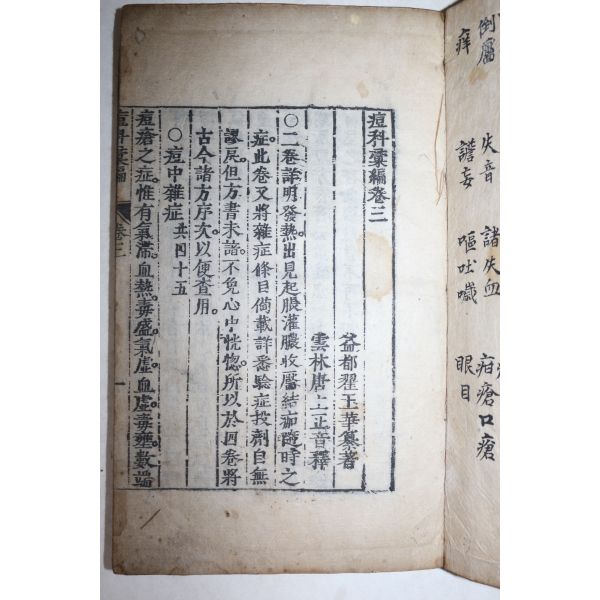 倒靨 失音 諸失血 疳瘡口瘡
痒 譫妄 嘔吐噦 眼目
痘科彙編卷三
益都翟玉華纂著
雲林唐上正音釋
○二卷詳明發熱出見起脹灌膿收靨結痂隨時之
症此卷又將雜症條目備載詳悉驗症投劑自無
謬戾但方書未諳不免心中恍惚所以於四卷將
古今諸方序次以便查用
○痘中雜症 共四十五
痘瘡之症惟有氣滯血熱毒盛氣虛血虛毒壅數端
痘科彙編 卷三 一